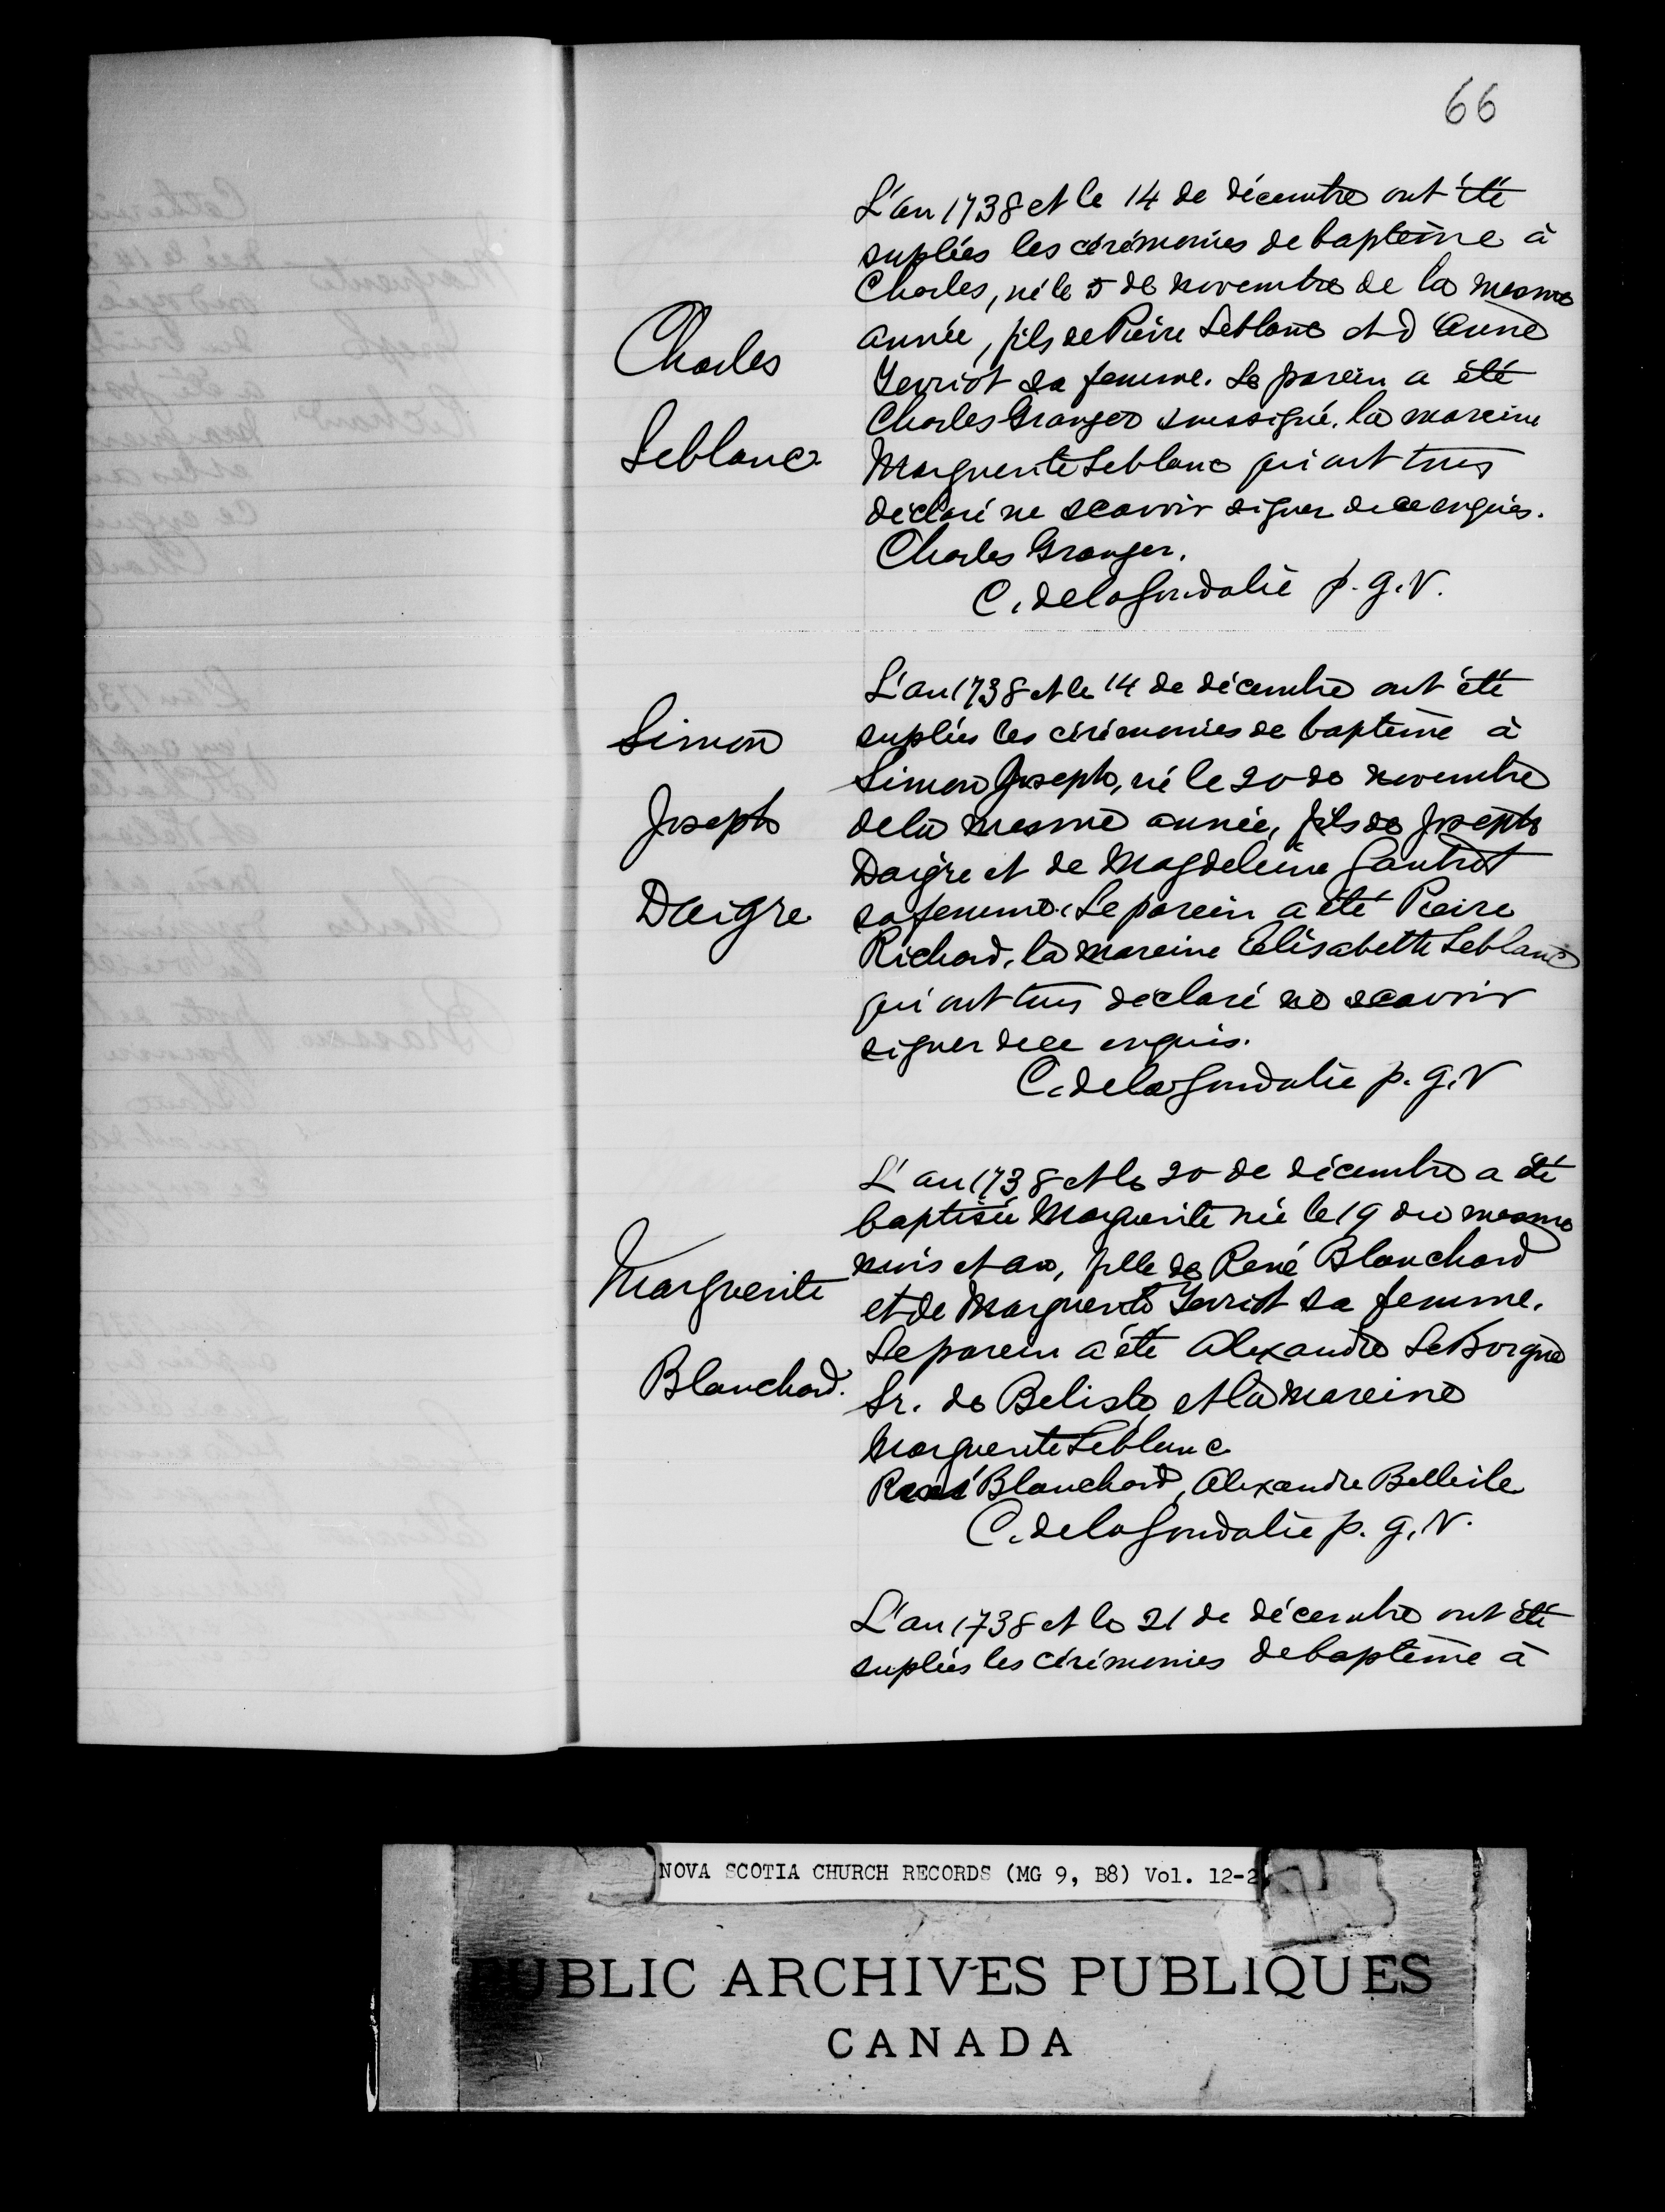 66
L'an 1738 et le 14 de décembre ont été
supléés les cérémonies de bapteme à
Charles, né le 5 de novembre de la mesme
Charles
année, fils de Pierre Leblanc et d'Anne
Terriot sa femme. Le parein a été
Charles Granger soussigné. la mareine
Leblanc
Marguerite Leblanc qui ont tous
déclaré ne scavoir signer de ce enquis.
Charles Granger.
C. de la Goudalie p. g. V.
L'an 1738 et le 14 de décembre ont été
Simon
supléés les cérémonies de bapteme à
Simon Joseph, né le 20 de novembre
Joseph
de la mesme année, fils de Joseph
Daigre et de Magdeleine Gautrot
Daigre
sa femme. Le parein a été Pierre
Richard, la mareine Elisabeth Leblanc
qui ont tous déclaré ne scavoir
signer de ce enquis.
C. de la Goudalie p. g. V
L'an 1738 et le 20 de décembre a été
baptisée Marguerite née le 19 du mesme
Marguerite
mois et an, fille de René Blanchard
et de Marguerite Terriot sa femme.
Le parein a été Alexandre Le Borgne
Blanchard.
Sr. de Belisle et la mareine
Marguerite Leblanc
René Blanchard, Alexandre Belleile
C. de la Goudalie p. g. V.
L'an 1738 et le 21 de décembre ont été
supléés les cérémonies de bapteme à
NOVA SCOTIA CHURCH RECORDS (MG 9, B8) Vol. 12-2
PUBLIC ARCHIVES PUBLIQUES
CANADA